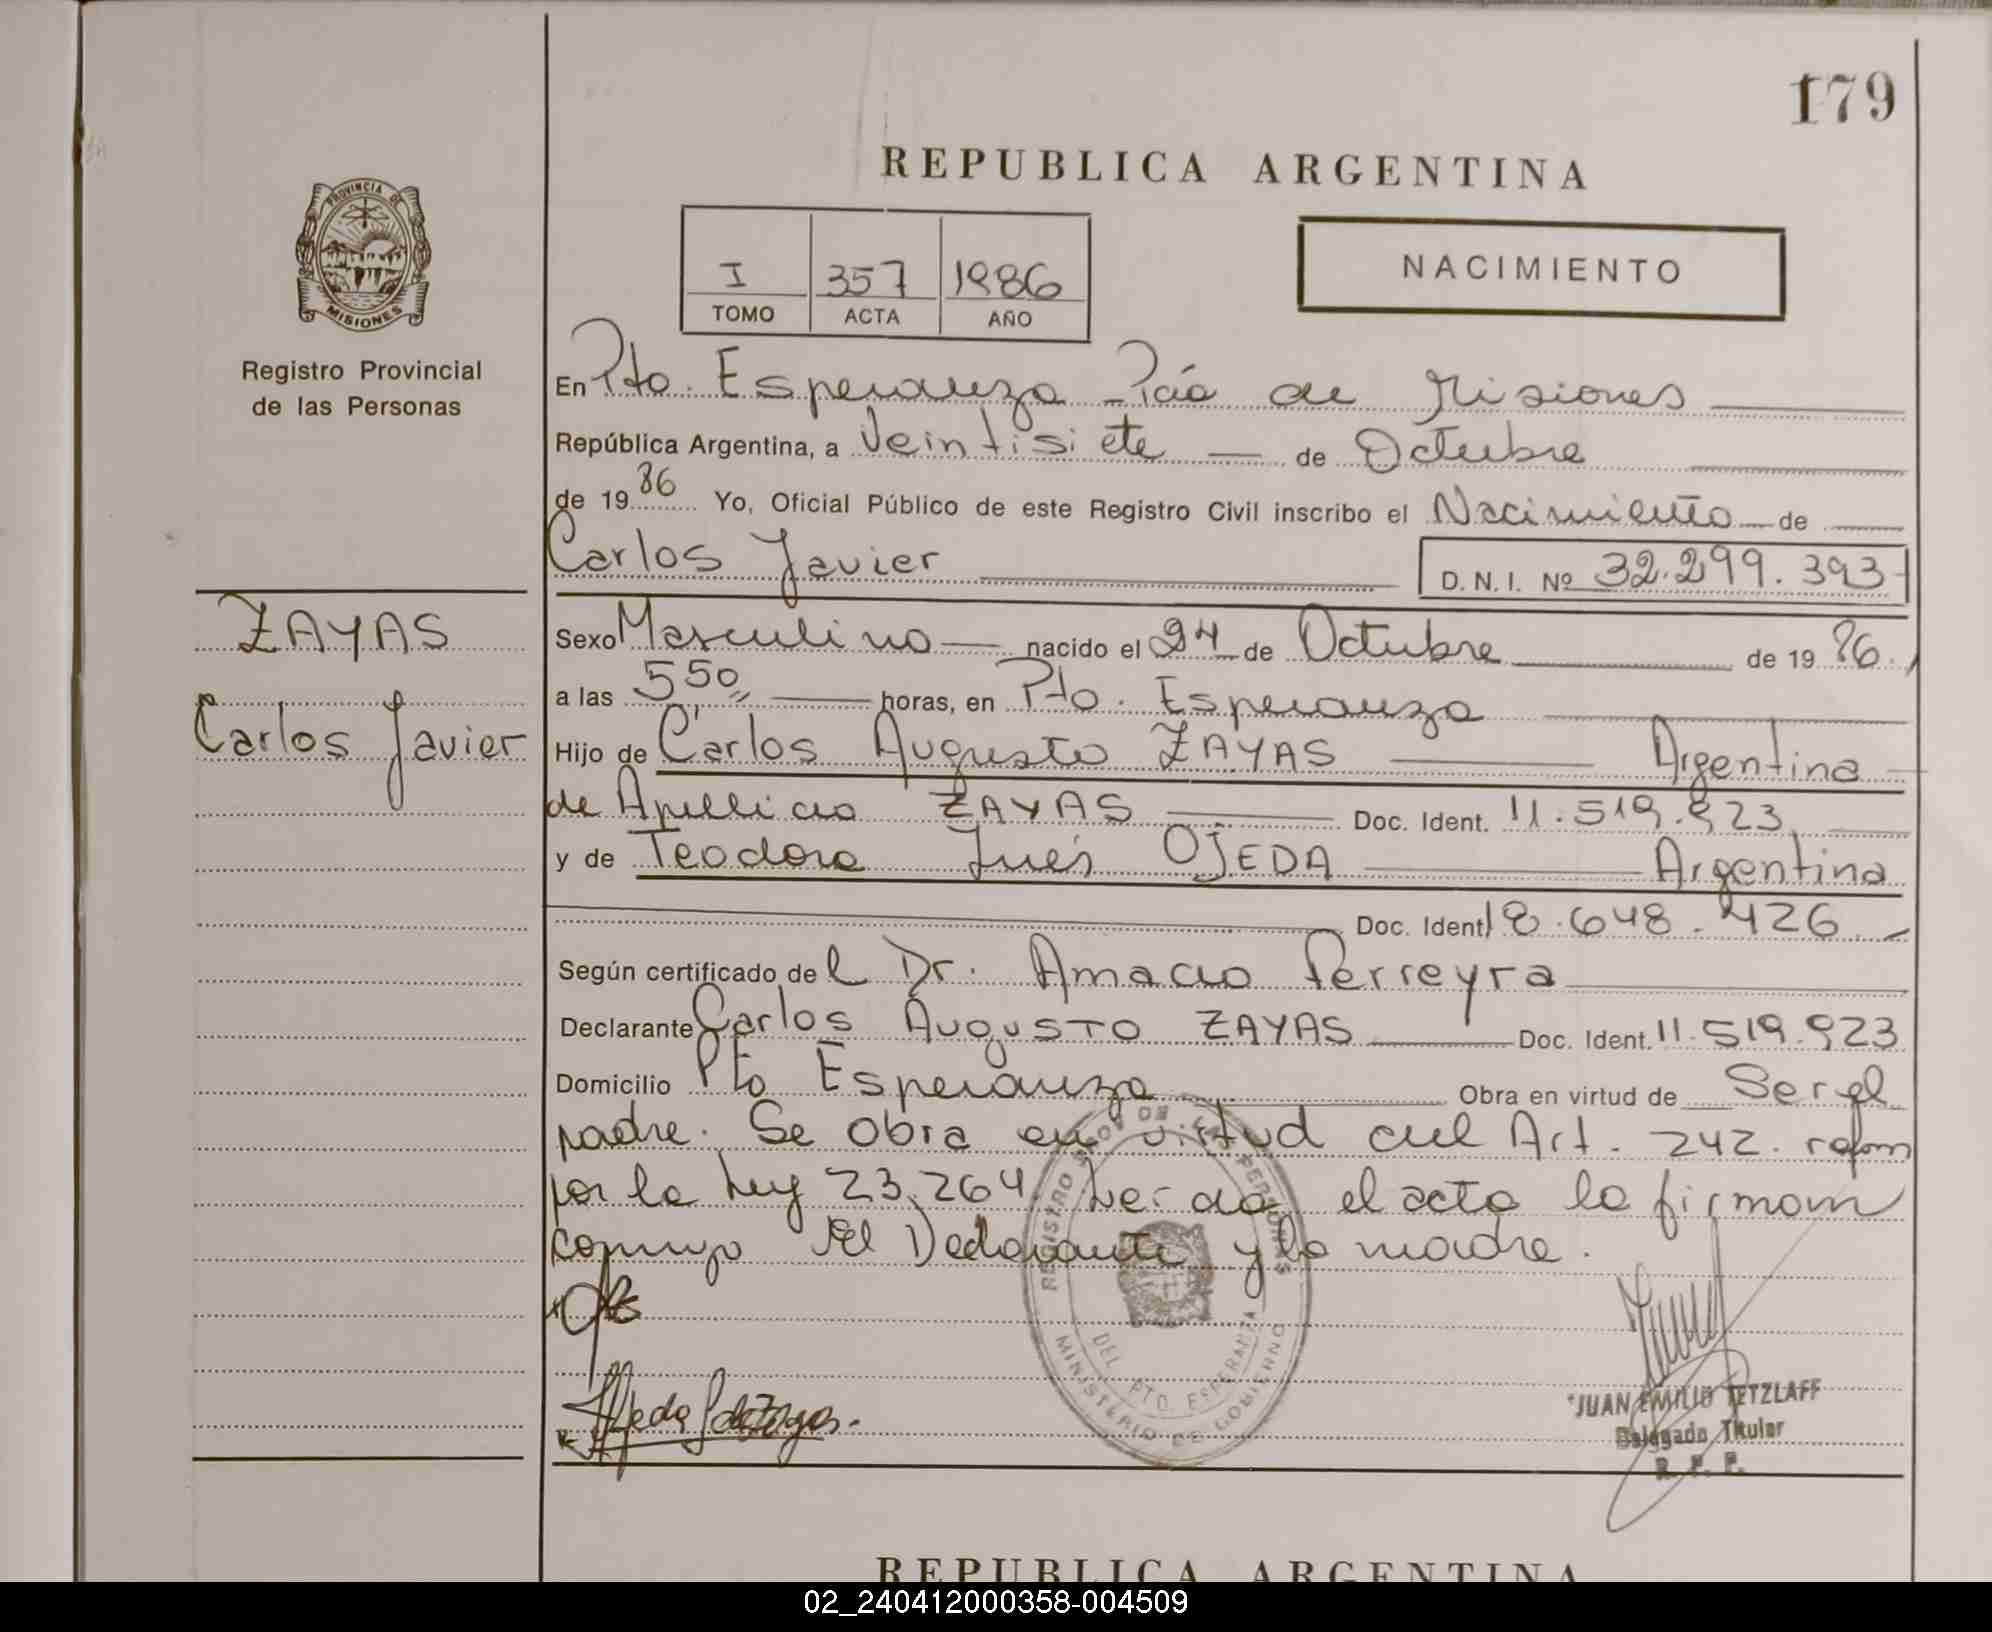 179
REPUBLICA ARGENTINA
PROVINCIA DE
MISIONES
I 357 1986
TOMO ACTA AÑO
NACIMIENTO
Registro Provincial
de las Personas
En Pto. Esperanza - Pcia de Misiones
República Argentina, a Veintisiete de Octubre
de 1986 Yo, Oficial Público de este Registro Civil inscribo el Nacimiento de
Carlos Javier D. N. I. Nº 32.299.393
ZAYAS
Carlos Javier
Sexo Masculino nacido el 24 de Octubre de 1986.
a las 5 50 horas, en Pto. Esperanza
Hijo de Carlos Augusto ZAYAS Argentina
de Apellido ZAYAS Doc. Ident. 11.519.923
y de Teodora Inés OJEDA Argentina
Doc. Ident 18.648.426
Según certificado del Dr. Amado Ferreyra
Declarante Carlos Augusto ZAYAS Doc. Ident. 11.519.923
Domicilio Pto Esperanza Obra en virtud de Ser el
padre. Se obra en virtud del Art. 242. reform
por la Ley 23.264 Leida el acta la firman
conmigo El Declarante y la madre.
REGISTRO DE LAS PERSONAS
DEL PTO ESPERANZA
MINISTERIO DE GOBIERNO
JUAN EMILIO TETZLAFF
Delegado Titular
R. P. P.
REPUBLICA ARGENTINA
02_240412000358-004509